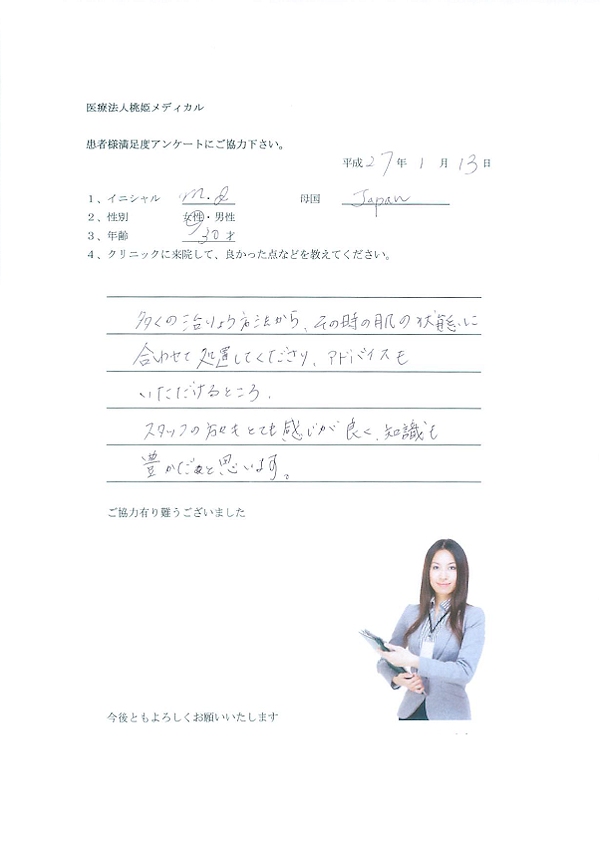 医療法人桃姫メディカル
患者様満足度アンケートにご協力下さい。
平成27年 1月 13日
1、イニシャル M.I 母国 Japan
2、性別 女性・男性
3、年齢 30才
4、クリニックに来院して、良かった点などを教えてください。
多くの治りょう方法から、その時の肌の状態に
合わせて処置してくださり、アドバイスも
いただけるところ。
スタッフの方々もとても感じが良く、知識も
豊かだなと思います。
ご協力有り難うございました
今後ともよろしくお願いいたします